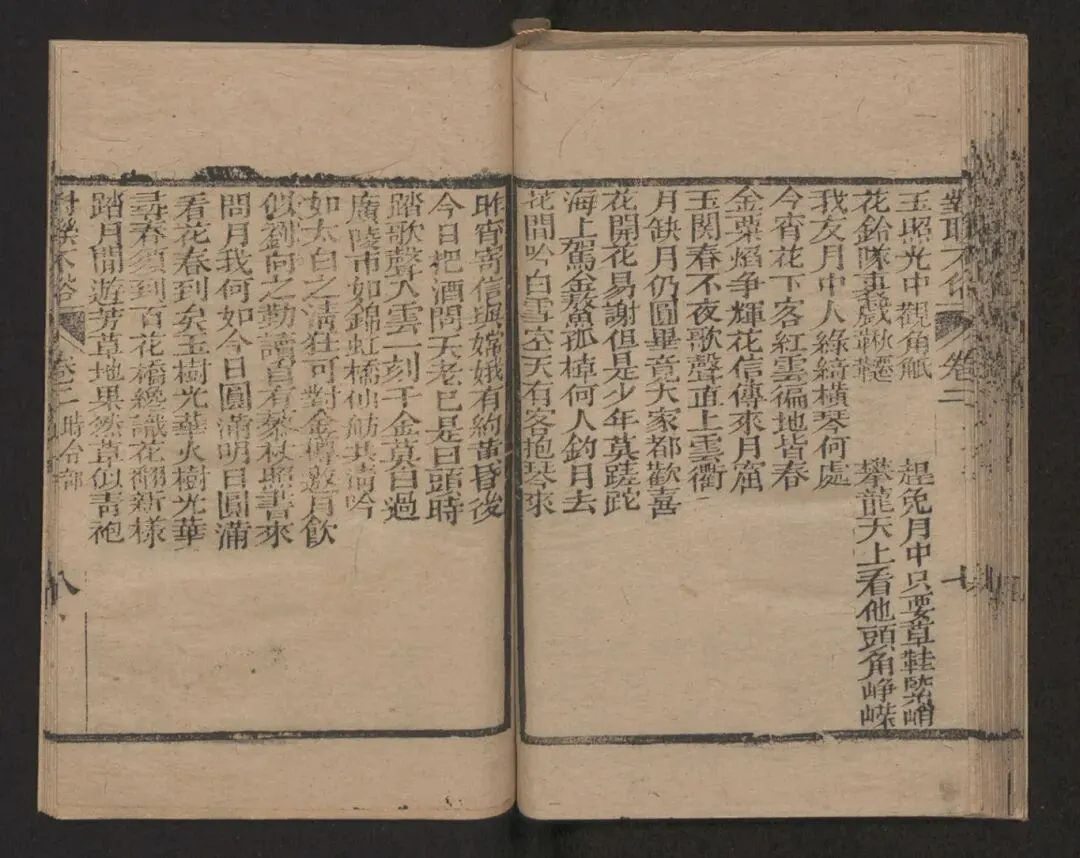 對聯不俗 卷二 七
玉照光中觀角觝 趕兔月中只要草鞋緊峭
花鈴隊裏戲鞦韆 攀龍天上看他頭角崢嶸
我友月中人綠綺橫琴何處
今宵花下客紅雲徧地皆春
金粟焰争輝花信傳來月窟
玉関春不夜歌聲直上雲衢
月缺月仍圓畢竟大家都歡喜
花開花易謝但是少年莫蹉跎
海上駕金鰲魚孤棹何人釣月去
花間吟白雪空天有客抱琴來
昨宵寄信與嫦娥有約黃昏後
今日把酒問天老已是日頭時
踏歌聲入雲一刻千金莫白過
廣陵市如錦虹橋仙舫共清吟
如太白之清狂可對金樽邀月飲
似劉向之勤讀自有藜杖照書來
問月我何如今日圓滿明日圓滿
看花春到矣玉樹光華火樹光華
尋春須到百花橋纔識花翻新樣
踏月閒遊芳草地果然草似青袍
對聯不俗 卷二 時令部 八